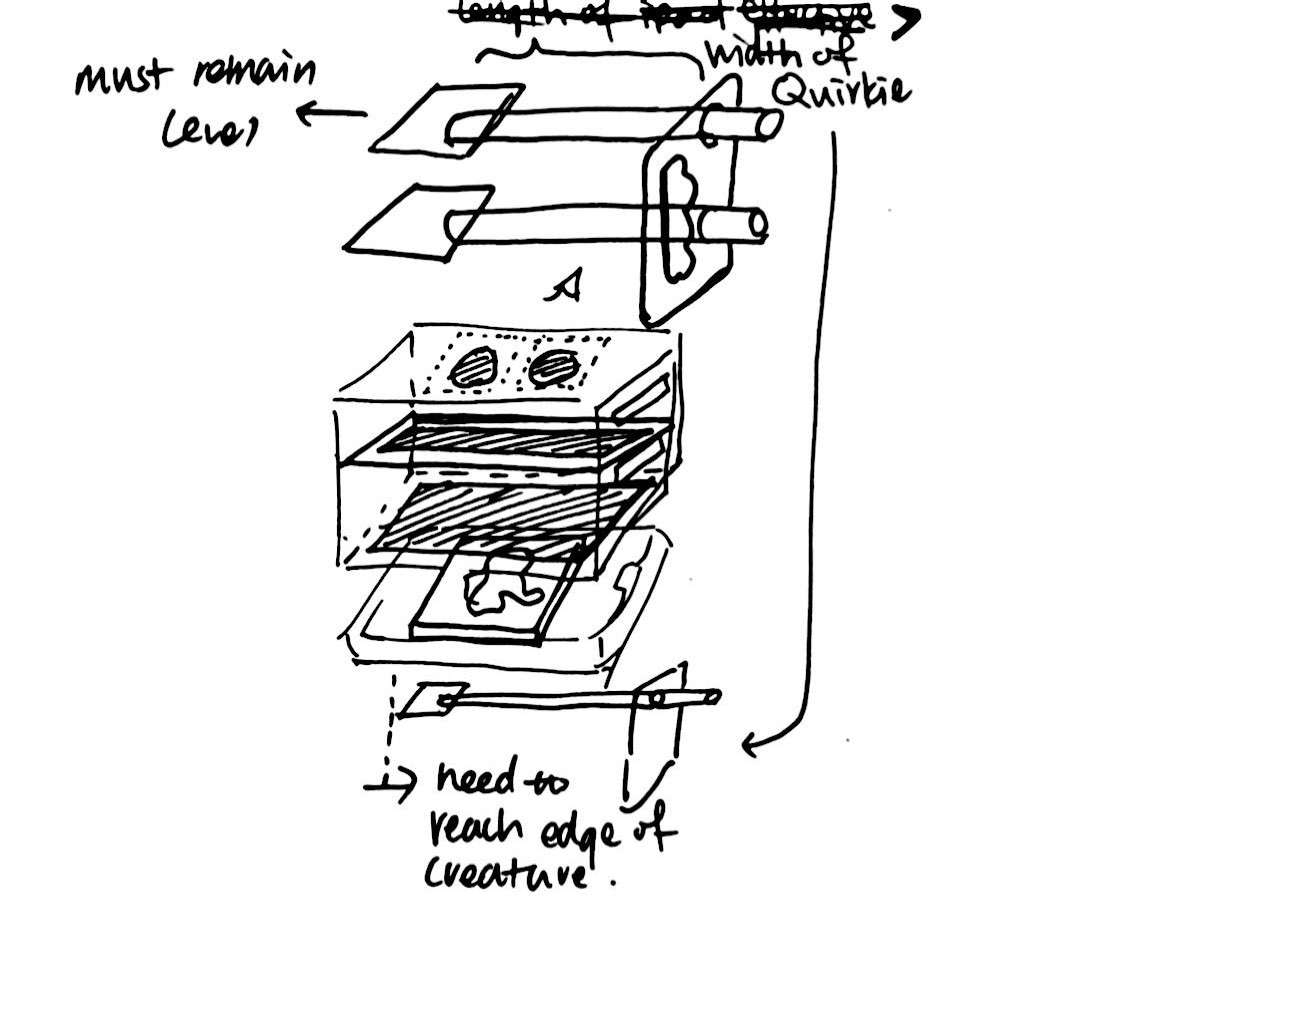 length of
>
width of
Quirkie
must remain
level
need to
reach edge of
creature.